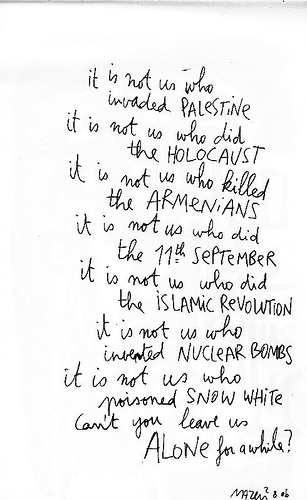 it is not us who
invaded PALESTiNE
it is not us who did
the HOLOCAUST
it is not us who killed
the ARMENiANS
it is not us who did
the 11th SEPTEMBER
it is not us who did
the iSLAMiC REVOLUTION
it is not us who
invented NUCLEAR BOMBS
it is not us who
poisoned SNOW WHiTE
Can't you leave us
ALONE for a while?
8 06